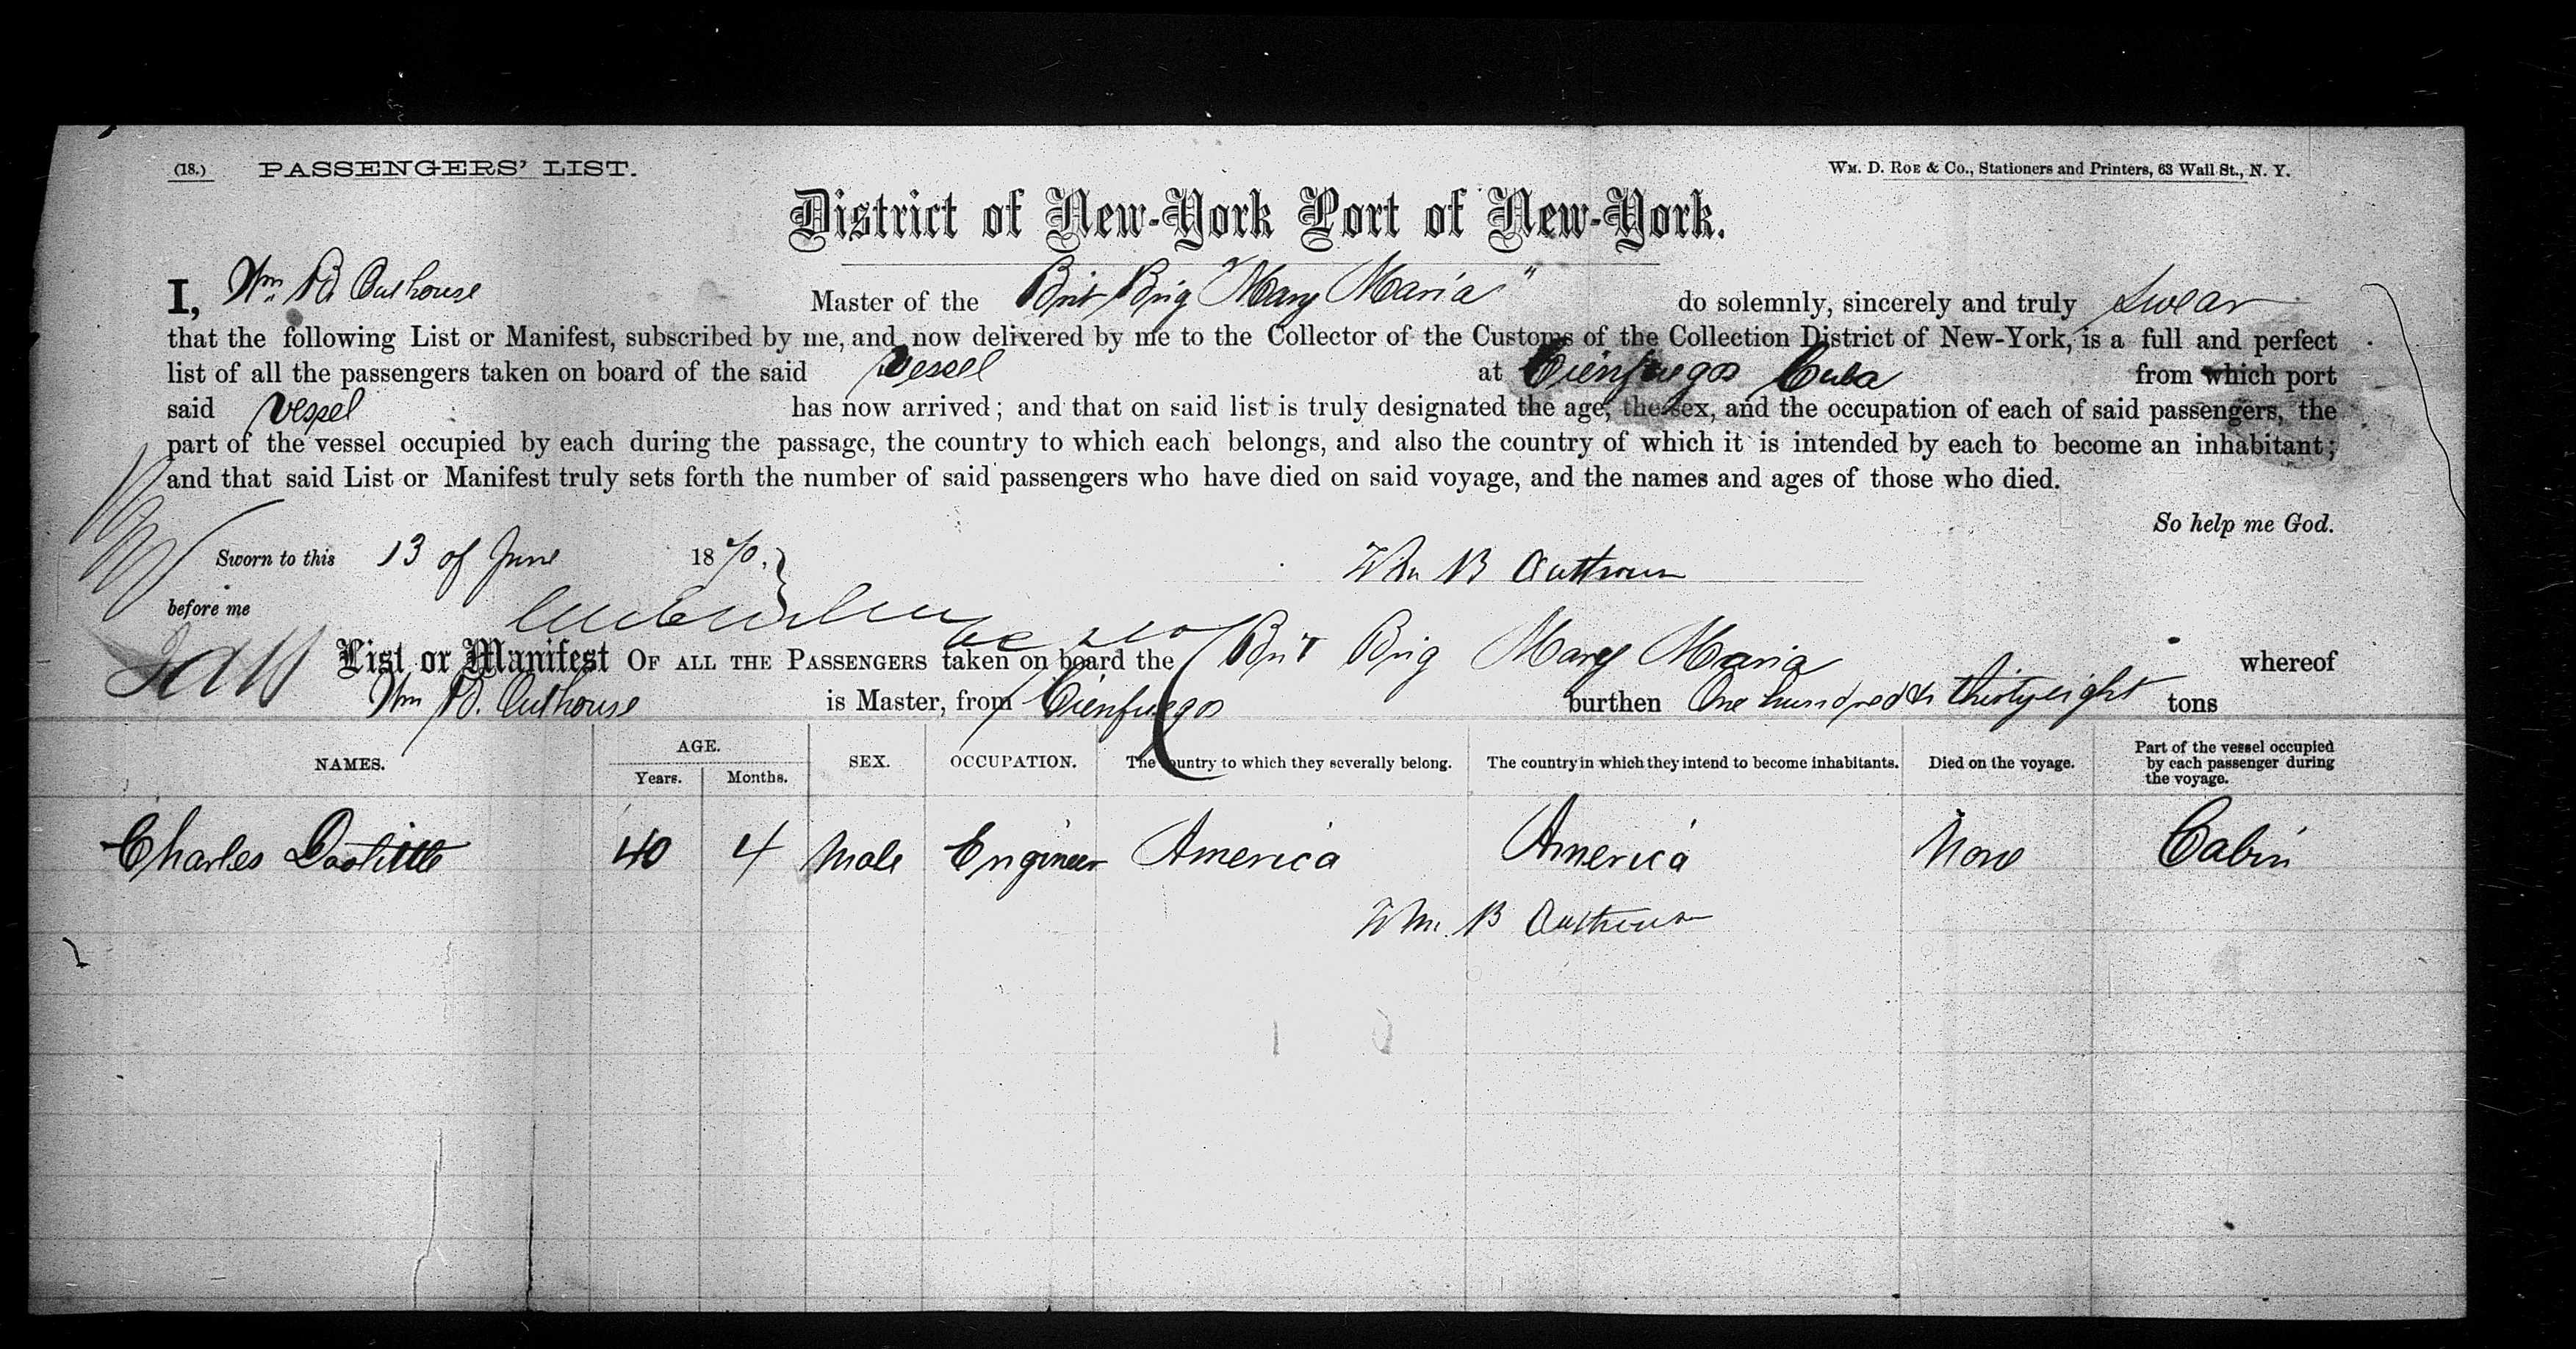 (18.) PASSENGERS' LIST. WM. D. ROE & Co., Stationers and Printers, 63 Wall St., N. Y.
District of New-York Port of New-York.
I, Wm B Outhouse Master of the Brit Brig "Mary Maria" do solemnly, sincerely and truly swear
that the following List or Manifest, subscribed by me, and now delivered by me to the Collector of the Customs of the Collection District of New-York, is a full and perfect
list of all the passengers taken on board of the said vessel at Cienfuegos Cuba from which port
said vessel has now arrived; and that on said list is truly designated the age, the sex, and the occupation of each of said passengers, the
part of the vessel occupied by each during the passage, the country to which each belongs, and also the country of which it is intended by each to become an inhabitant;
and that said List or Manifest truly sets forth the number of said passengers who have died on said voyage, and the names and ages of those who died.
So help me God.
Sworn to this 13 of June 1870. Wm B Outhouse
before me
List or Manifest OF ALL THE PASSENGERS taken on board the Brit Brig Mary Maria whereof
Wm B. Outhouse is Master, from Cienfuegos burthen One hundred & thirty eight tons
NAMES. AGE. Years. Months. SEX. OCCUPATION. The country to which they severally belong. The country in which they intend to become inhabitants. Died on the voyage. Part of the vessel occupied by each passenger during the voyage.
Charles Doolittle 40 4 Male Engineer America America None Cabin
Wm. B Outhouse